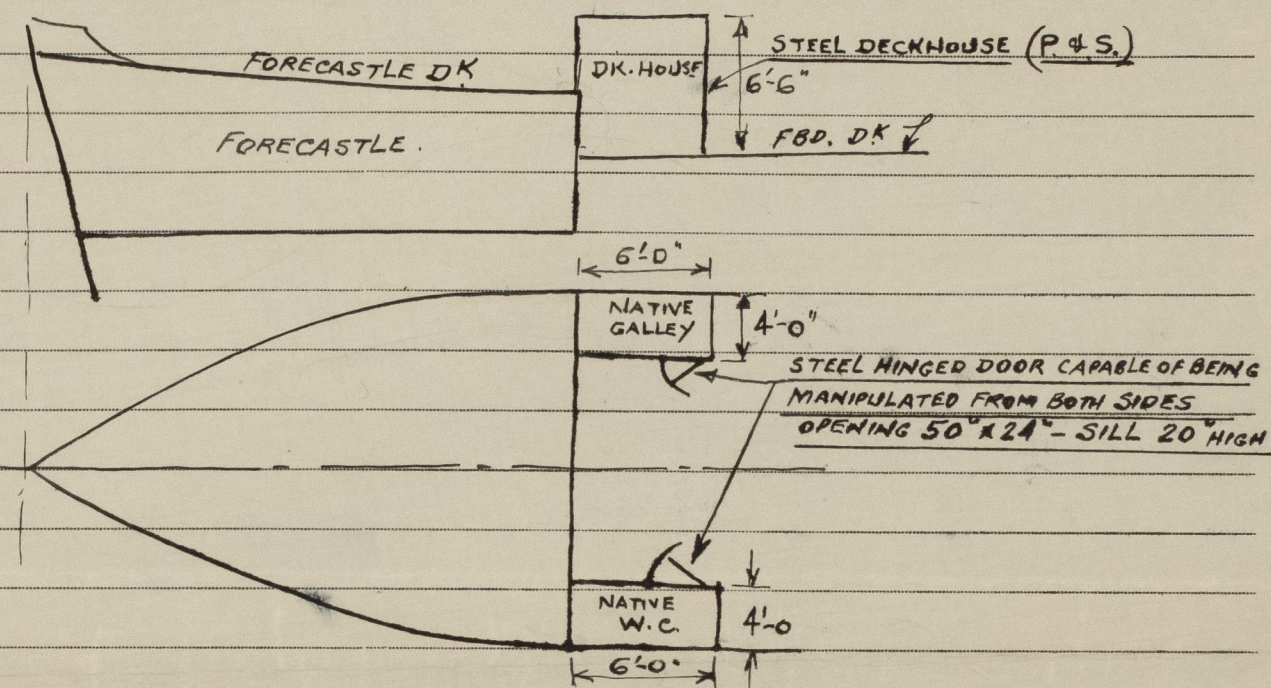 STEEL DECKHOUSE (P. & S.)
FORECASTLE DK
DK. HOUSE
6'-6"
FORECASTLE.
FBD. DK
6'-0"
NATIVE
GALLEY
4'-0"
STEEL HINGED DOOR CAPABLE OF BEING
MANIPULATED FROM BOTH SIDES
OPENING 50" X 24" - SILL 20" HIGH
NATIVE
W.C.
4'-0
6'-0"